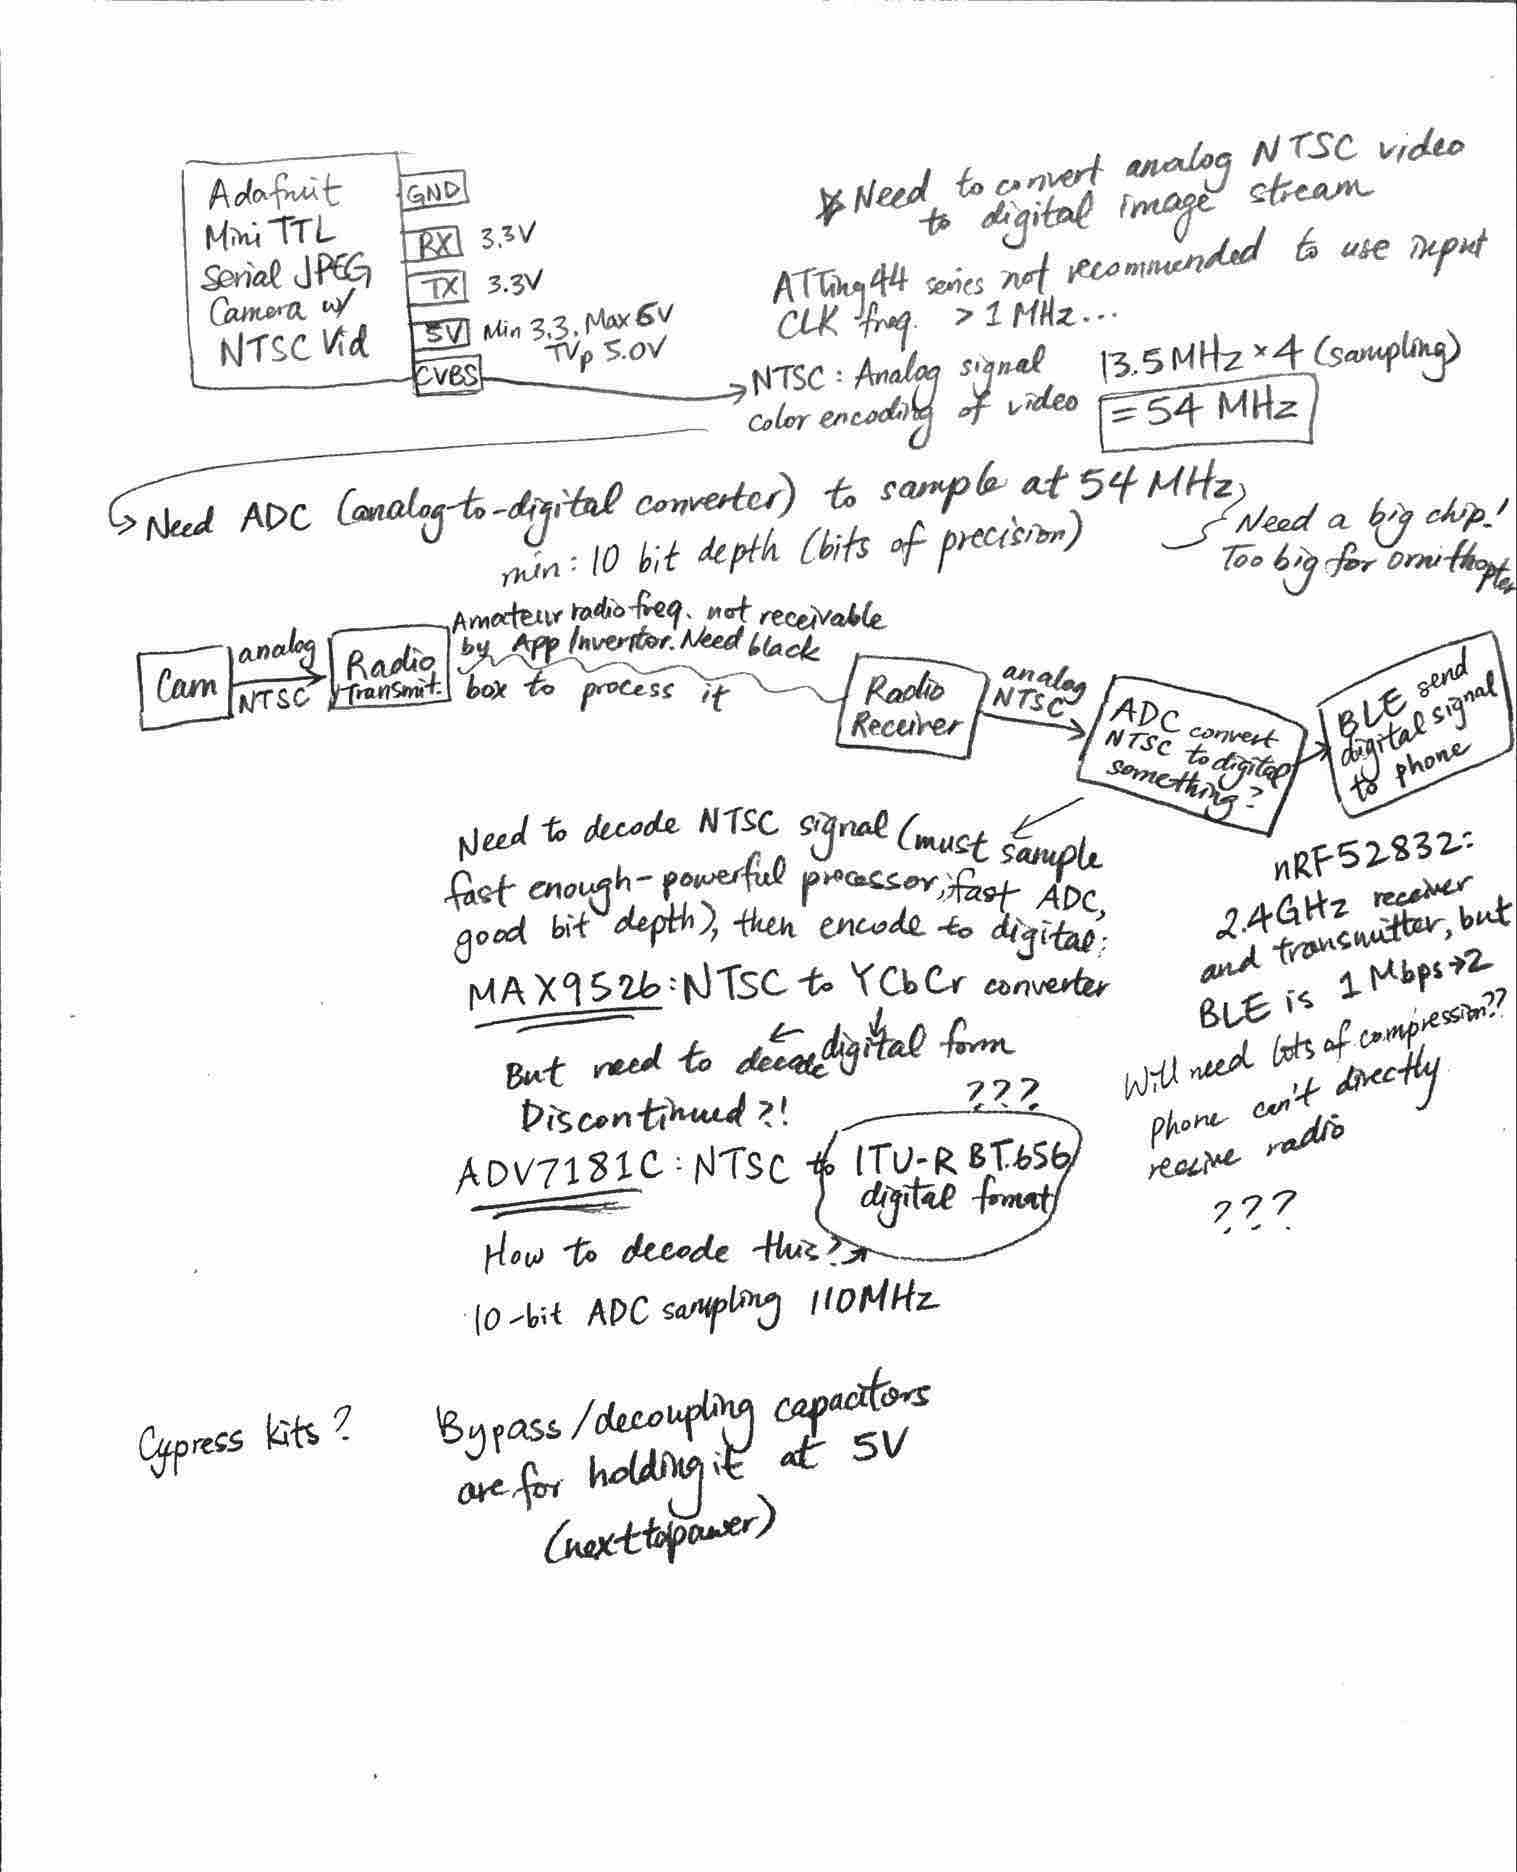 Adafruit
Mini TTL
Serial JPEG
Camera w/
NTSC Vid
GND
RX 3.3V
TX 3.3V
5V Min 3.3. Max 6V
TYp 5.0V
CVBS
Need to convert analog NTSC video
to digital image stream
ATTiny44 series not recommended to use input
CLK freq. > 1 MHz...
NTSC: Analog signal
color encoding of video
13.5 MHz × 4 (sampling)
= 54 MHz
Need ADC (analog-to-digital converter) to sample at 54 MHz
min: 10 bit depth (bits of precision)
Need a big chip!
Too big for ornithopter
Cam
analog
NTSC
Radio
Transmit.
Amateur radio freq. not receivable
by App Inventor. Need black
box to process it
Radio
Receiver
analog
NTSC
ADC convert
NTSC to digital
something?
BLE send
digital signal
to phone
Need to decode NTSC signal (must sample
fast enough - powerful processor, fast ADC,
good bit depth), then encode to digital:
MAX9526: NTSC to YCbCr converter
But need to decode digital form
Discontinued?!
???
ADV7181C: NTSC to ITU-R BT.656
digital format
How to decode this?
10-bit ADC sampling 110MHz
nRF52832:
2.4GHz receiver
and transmitter, but
BLE is 1 Mbps→2
Will need lots of compression??
Phone can't directly
receive radio
???
Cypress kits?
Bypass/decoupling capacitors
are for holding it at 5V
(next to power)